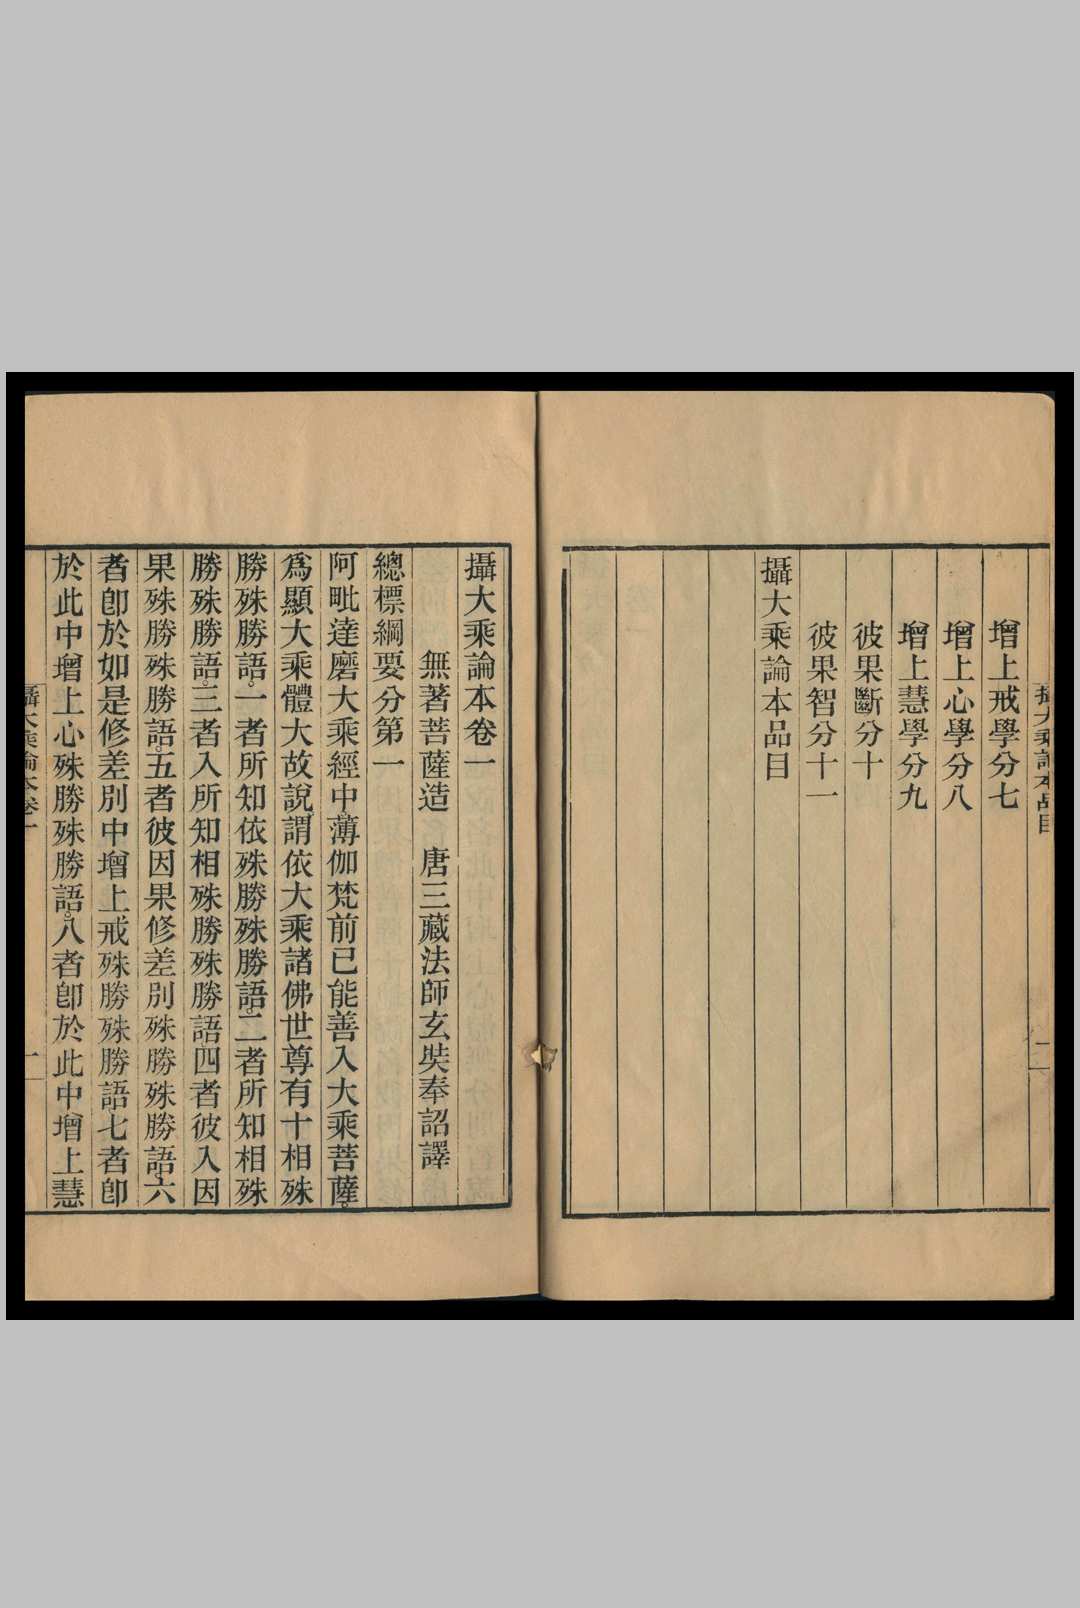 攝大乘論本品目
二
增上戒學分七
增上心學分八
增上慧學分九
彼果斷分十
彼果智分十一
攝大乘論本品目
攝大乘論本卷一
無著菩薩造 唐三藏法師玄奘奉詔譯
總標綱要分第一
阿毗達磨大乘經中薄伽梵前已能善入大乘菩薩。
爲顯大乘體大故說。謂依大乘諸佛世尊有十相殊
勝殊勝語。一者所知依殊勝殊勝語。二者所知相殊
勝殊勝語。三者入所知相殊勝殊勝語。四者彼入因
果殊勝殊勝語。五者彼因果修差別殊勝殊勝語。六
者卽於如是修差別中增上戒殊勝殊勝語。七者卽
於此中增上心殊勝殊勝語。八者卽於此中增上慧
攝大乘論本卷一
一